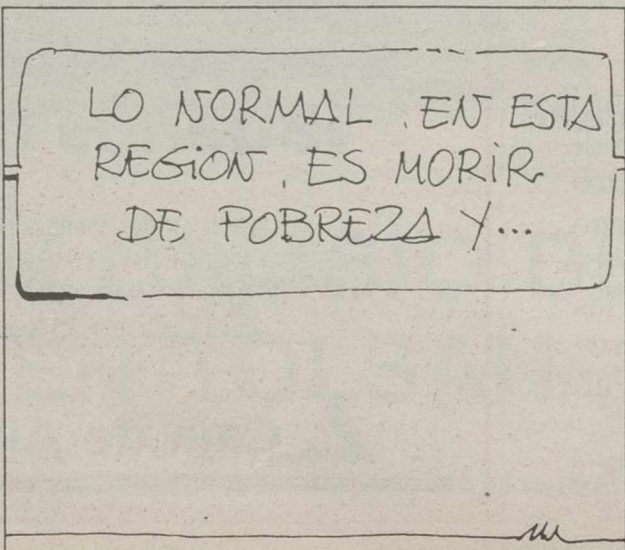 LO NORMAL, EN ESTA
REGION, ES MORIR
DE POBREZA Y...